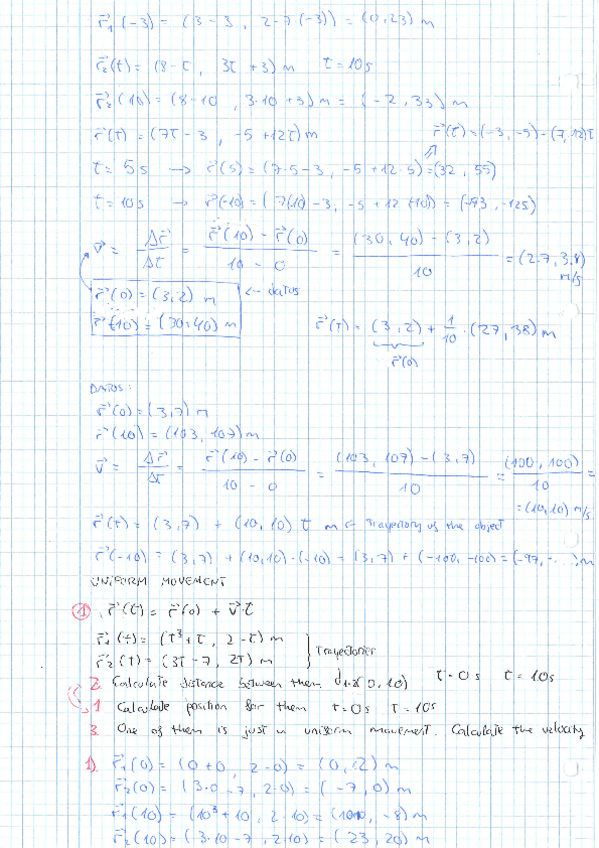 r⃗₁(-3) = (3-3, 2-7·(-3)) = (0,23) m
r⃗₂(t) = (8-t, 3t+3) m t=10s
r⃗₂(10) = (8-10, 3·10+3) m = (-2, 33) m
r⃗(t) = (7t-3, -5+12t) m r⃗(t) = (-3,-5)-(7,12)t
t = 5s → r⃗(5) = (7·5-3, -5+12·5) = (32, 55)
t = 10s → r⃗(-10) = (7(-10)-3, -5+12(-10)) = (-93, -125)
v⃗ = Δr⃗/Δt = (r⃗(10) - r⃗(0))/(10-0) = ((30,40)-(3,2))/10 = (2.7, 3.8) m/s
r⃗(0) = (3,2) m <- datos
r⃗(10) = (30,40) m
r⃗(t) = (3,2) + 1/10 · (27,38) m
r⃗(0)
DATOS:
r⃗(0) = (3,7) m
r⃗(10) = (103, 107) m
v⃗ = Δr⃗/Δt = (r⃗(10) - r⃗(0))/(10-0) = ((103,107)-(3,7))/10 = (100,100)/10 =
= (10,10) m/s
r⃗(t) = (3,7) + (10,10) t m <- Trajectory of the object
r⃗(-10) = (3,7) + (10,10)·(-10) = (3,7) + (-100,-100) = (-97, -...) m
UNIFORM MOVEMENT
① r⃗(t) = r⃗(0) + v⃗·t
r⃗₁(t) = (t³+t, 2-t) m
r⃗₂(t) = (3t-7, 2t) m
Trajectories
2. Calculate distance between them t=0s t=10s
1 Calculate position for them t=0s t=10s
3. One of them is just in uniform movement. Calculate the velocity
1). r⃗₁(0) = (0+0, 2-0) = (0,2) m
r⃗₂(0) = (3·0-7, 2·0) = (-7,0) m
r⃗₁(10) = (10³+10, 2-10) = (1010, -8) m
r⃗₂(10) = (3·10-7, 2·10) = (23, 20) m